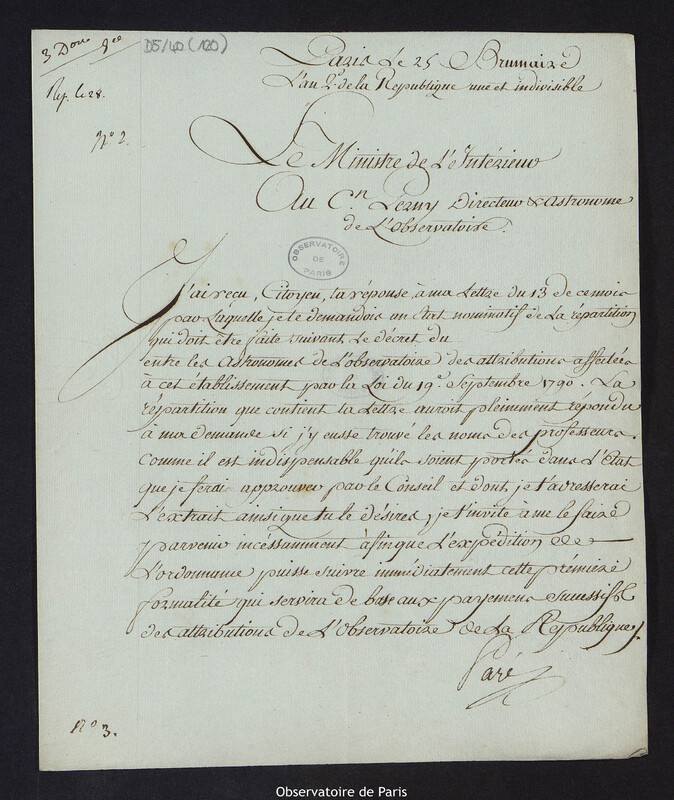 3 Don
D5/40 (120)
Rep. le 28.
N° 2.
Paris Le 25 Brumaire
L'an 2e de la Republique une et indivisible
Le Ministre de L'Intérieur
Au C.n Perny Directeur & Astronome
de L'Observatoire.
OBSERVATOIRE
DE
PARIS
J'ai reçu, Citoyen, ta réponse à ma Lettre du 13 de ce mois
par Laquelle je te demandois un Etat nominatif de La répartition
qui doit être faite suivant Le décret du
entre les Astronomes de L'observatoire des attributions affectées
à cet établissement par la Loi du 19e Septembre 1790. La
répartition que contient ta Lettre auroit pleinement répondu
à ma demande si j'y eusse trouvé les noms des professeurs.
Comme il est indispensable qu'ils soient portés dans L'Etat
que je ferai approuver par le Conseil et dont je t'adresserai
L'extrait ainsi que tu le désires, je t'invite à me le faire
parvenir incéssamment afin que L'expédition de
L'ordonnance puisse suivre immédiatement cette prémiere
formalité qui servira de base aux payemens successifs
des attributions de L'Observatoire de La Republique.
Paré
N° 3.
Observatoire de Paris